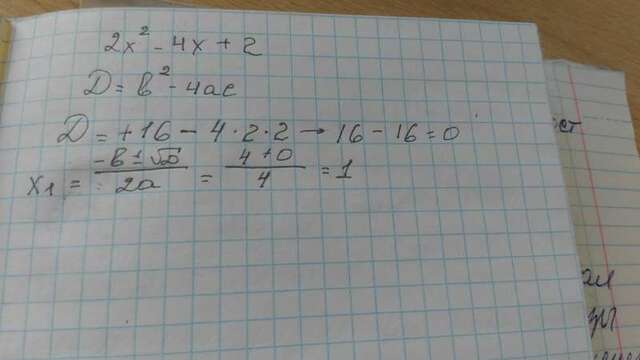 2x² - 4x + 2
D = b² - 4ac
D = +16 - 4·2·2 → 16 - 16 = 0
x₁ = (-b ± √D)/2a = (4+0)/4 = 1